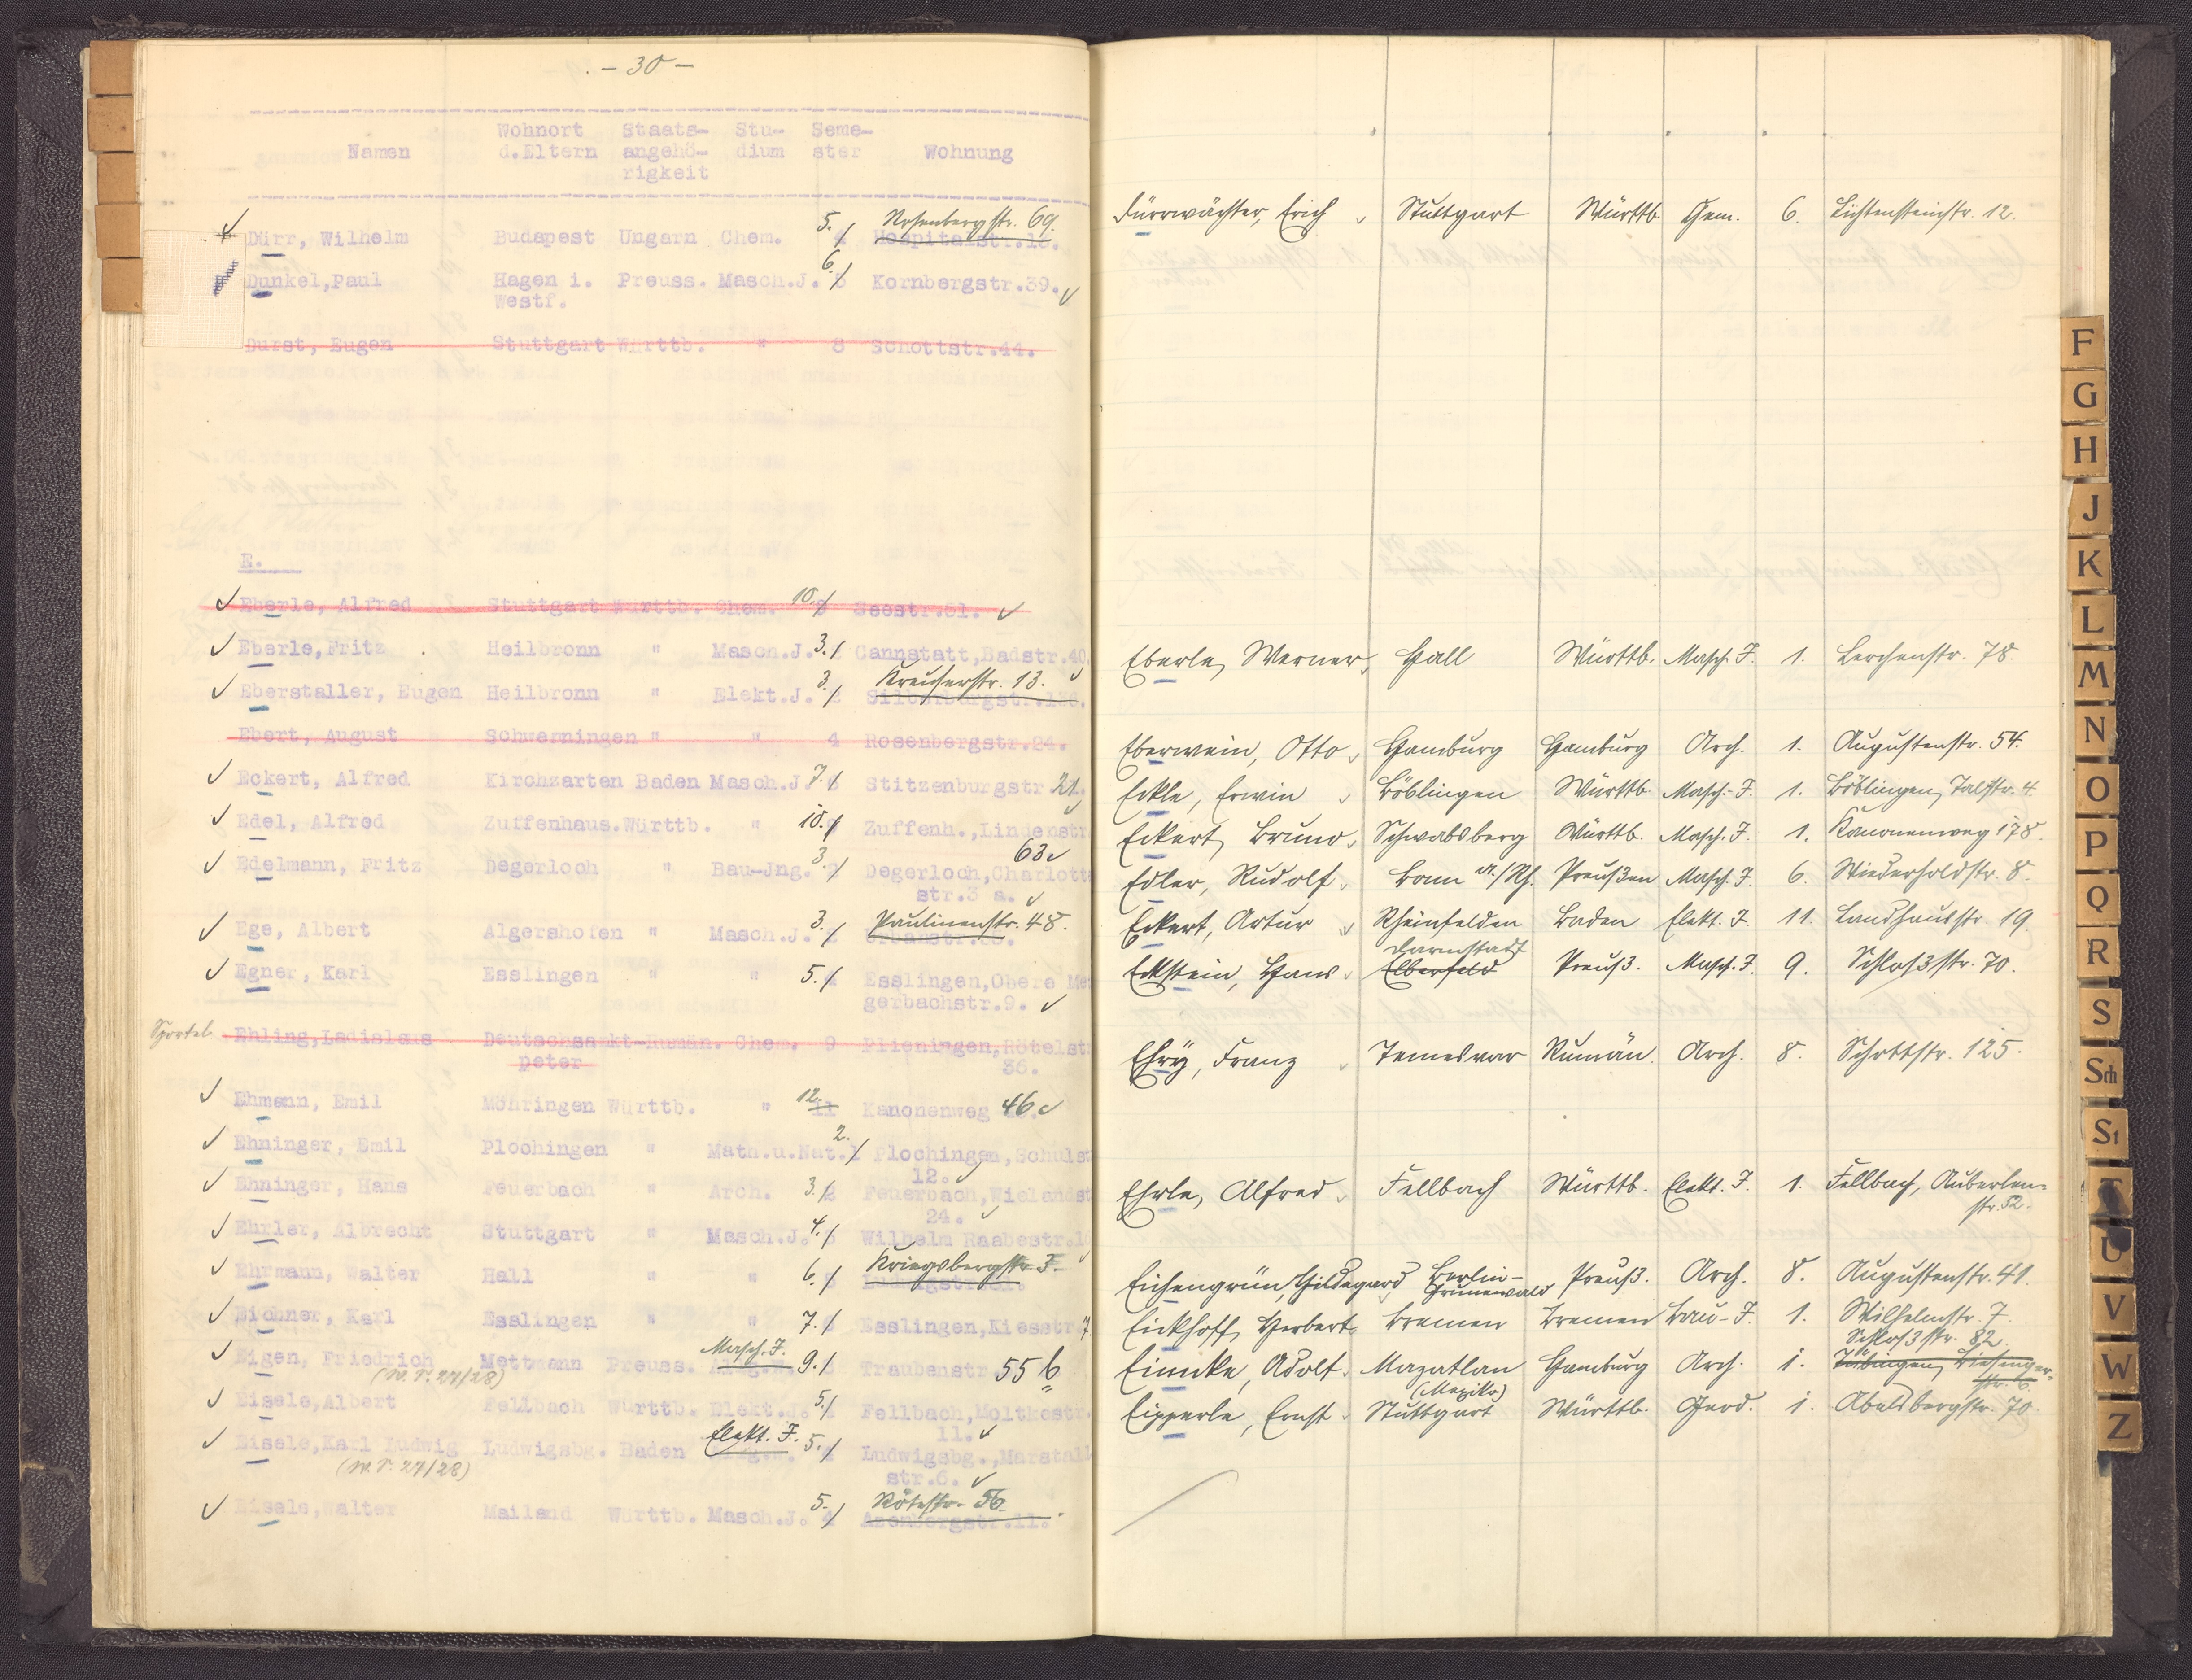 - 30 -
Namen Wohnort d.Eltern Staats-angehö-rigkeit Stu-dium Seme-ster Wohnung
Dürr, Wilhelm Budapest Ungarn Chem. 5. Rosenbergstr. 69.
Hospitalstr.18.
Dunkel,Paul Hagen i. Preuss. Masch.J. 6. Kornbergstr.39.
Westf.
Durst, Eugen Stuttgart Württb. " 8 Schottstr.44.
E.
Eberle, Alfred Stuttgart Württb. Chem. 10. Seestr.81.
Eberle,Fritz Heilbronn " Masch.J. 3. Cannstatt,Badstr.40.
Kreuserstr. 13.
Eberstaller, Eugen Heilbronn " Elekt.J. 3.
Ebert, August Schwenningen " " 4 Rosenbergstr.24.
Eckert, Alfred Kirchzarten Baden Masch.J 7. Stitzenburgstr 21.
Edel, Alfred Zuffenhaus.Württb. " 10. Zuffenh.,Lindenstr
63
Edelmann, Fritz Degerloch " Bau-Jng. 3. Degerloch,Charlott
str.3 a.
Ege, Albert Algershofen " Masch.J. 3. Paulinenstr. 48.
Egner, Karl Esslingen " " 5. Esslingen,Obere Me
gerbachstr.9.
Sportel. Ehling,Ladislaus Deutschsankt- Rumän. Chem. 9 Plieningen,Rötelst
peter 35.
Ehmann, Emil Möhringen Württb. " 12. 11 Kanonenweg 46
Ehninger, Emil Plochingen " Math.u.Nat. 2. 1 Plochingen,Schulst
12.
Ehninger, Hans Feuerbach " Arch. 3. 2 Feuerbach,Wielandst
24.
Ehrler, Albrecht Stuttgart " Masch.J. 4. Wilhelm Raabestr.1
Ehrmann, Walter Hall " " 6. Kriegsbergstr. 3.
Eichner, Karl Esslingen " " 7. Esslingen,Kiesstr 7
Masch. J.
Eigen, Friedrich Mettmann Preuss. 9. Traubenstr 55 b
(W.S. 27/28)
Eisele,Albert Fellbach Württb. Elekt.J. 5. Fellbach,Moltkestr
11.
Eisele,Karl Ludwig Ludwigsbg. Baden Elekt. J. 5. Ludwigsbg.,Marstall
(W.S. 27/28) str.6.
Eisele,Walter Mailand Württb. Masch.J. 5. Rötestr. 56.
Azenbergstr.11.
Dürrwächter, Erich Stuttgart Württb. Chem. 6. Lichtensteinstr. 12.
Eberle, Werner Hall Württb. Masch. J. 1. Lerchenstr. 78.
Eberwein, Otto Hamburg Hamburg Arch. 1. Augustenstr. 54.
Eckle, Erwin Böblingen Württb. Masch.-J. 1. Böblingen, Talstr. 4
Eckert, Bruno Schwabsberg Württb. Masch. J. 1. Kanonenweg 178.
Edler, Rudolf Bonn a./Rh. Preußen Masch. J. 6. Wiederholdstr. 8.
Eckert, Artur Rheinfelden Baden Elekt. J. 11. Landhausstr. 19.
Darmstadt
Eckstein, Hans Elberfeld Preuß. Masch. J. 9. Schloßstr. 70.
Ehry, Franz Temesvar Rumän. Arch. 8. Schottstr. 125.
Ehrle, Alfred Fellbach Württb. Elekt. J. 1. Fellbach, Auberlen-
str. 52.
Eichengrün, Hildegard Berlin- Preuß. Arch. 8. Augustenstr. 41.
Grunewald
Eickhoff, Herbert Bremen Bremen Bau-J. 1. Wilhelmstr. 7.
Schloßstr. 82.
Adolf Mazatlan Hamburg Arch. 1. Tübingen,
(Mexiko)
Eipperle, Ernst Stuttgart Württb. Geod. 1. Abelsbergstr. 70.
F
G
H
J
K
L
M
N
O
P
Q
R
S
Sch
St
T
U
V
W
Z